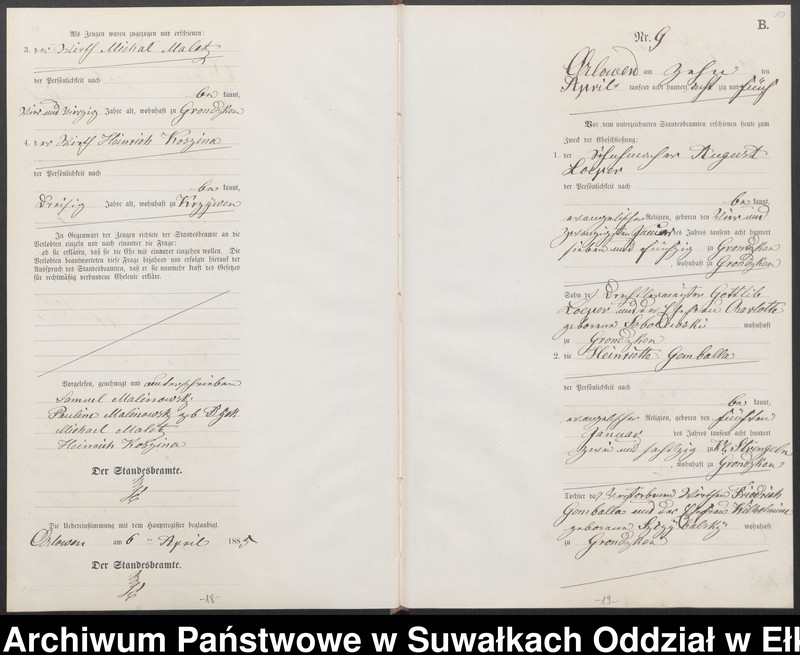 Als Zeugen waren zugezogen und erschienen:
3. der Wirth Michal Malotz
der Persönlichkeit nach
be kannt,
Vier und vierzig Jahre alt, wohnhaft zu Grondzken
4. der Wirth Heinrich Koszina
der Persönlichkeit nach
be kannt,
Dreißig Jahre alt, wohnhaft zu Krzywen
In Gegenwart der Zeugen richtete der Standesbeamte an die
Verlobten einzeln und nach einander die Frage:
ob sie erklären, daß sie die Ehe mit einander eingehen wollen. Die
Verlobten beantworteten diese Frage bejahend und erfolgte hierauf der
Ausspruch des Standesbeamten, daß er sie nunmehr kraft des Gesetzes
für rechtmäßig verbundene Eheleute erkläre.
Vorgelesen, genehmigt und unterschrieben
Samuel Malinowski
Pauline Malinowski geb
Michael Malotz
Heinrich Koszina
Der Standesbeamte.
Die Uebereinstimmung mit dem Hauptregister beglaubigt.
Orlowen am 6 ten April 1885
Der Standesbeamte.
-18-
10
B.
Nr. 9
Orlowen am zehn ten
April tausend acht hundert acht zig und fünf
Vor dem unterzeichneten Standesbeamten erschienen heute zum
Zweck der Eheschließung:
1. der Schuhmacher August
Loeper
der Persönlichkeit nach
be kannt,
evangelischer Religion, geboren den Vier und
zwanzigsten Januar des Jahres tausend acht hundert
sieben und fünfzig zu Grondzken
, wohnhaft zu Grondzken
Sohn des Drechslermeister Gottlieb
Loeper und der Ehefrau Charlotte
geborene wohnhaft
zu Grondzken
2. die Heinriette Gemballa
der Persönlichkeit nach
be kannt,
evangelischer Religion, geboren den fünften
Januar des Jahres tausend acht hundert
zwei und sechszig zu Kl. Strengeln
, wohnhaft zu Grondzken
Tochter des verstorbenen Wirthen Friedrich
Gemballa und der Ehefrau Wilhelmine
geborene wohnhaft
zu Grondzken
-19-
Archiwum Państwowe w Suwałkach Oddział w Ełk